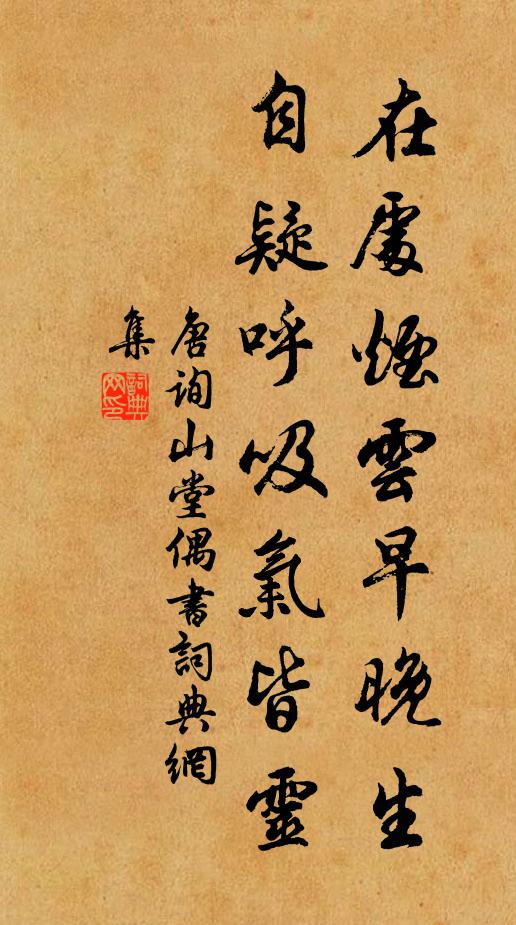 在處煙雲早晚生
自疑呼吸氣皆靈
唐詢山堂偶書詞典網
集
詞典
網印